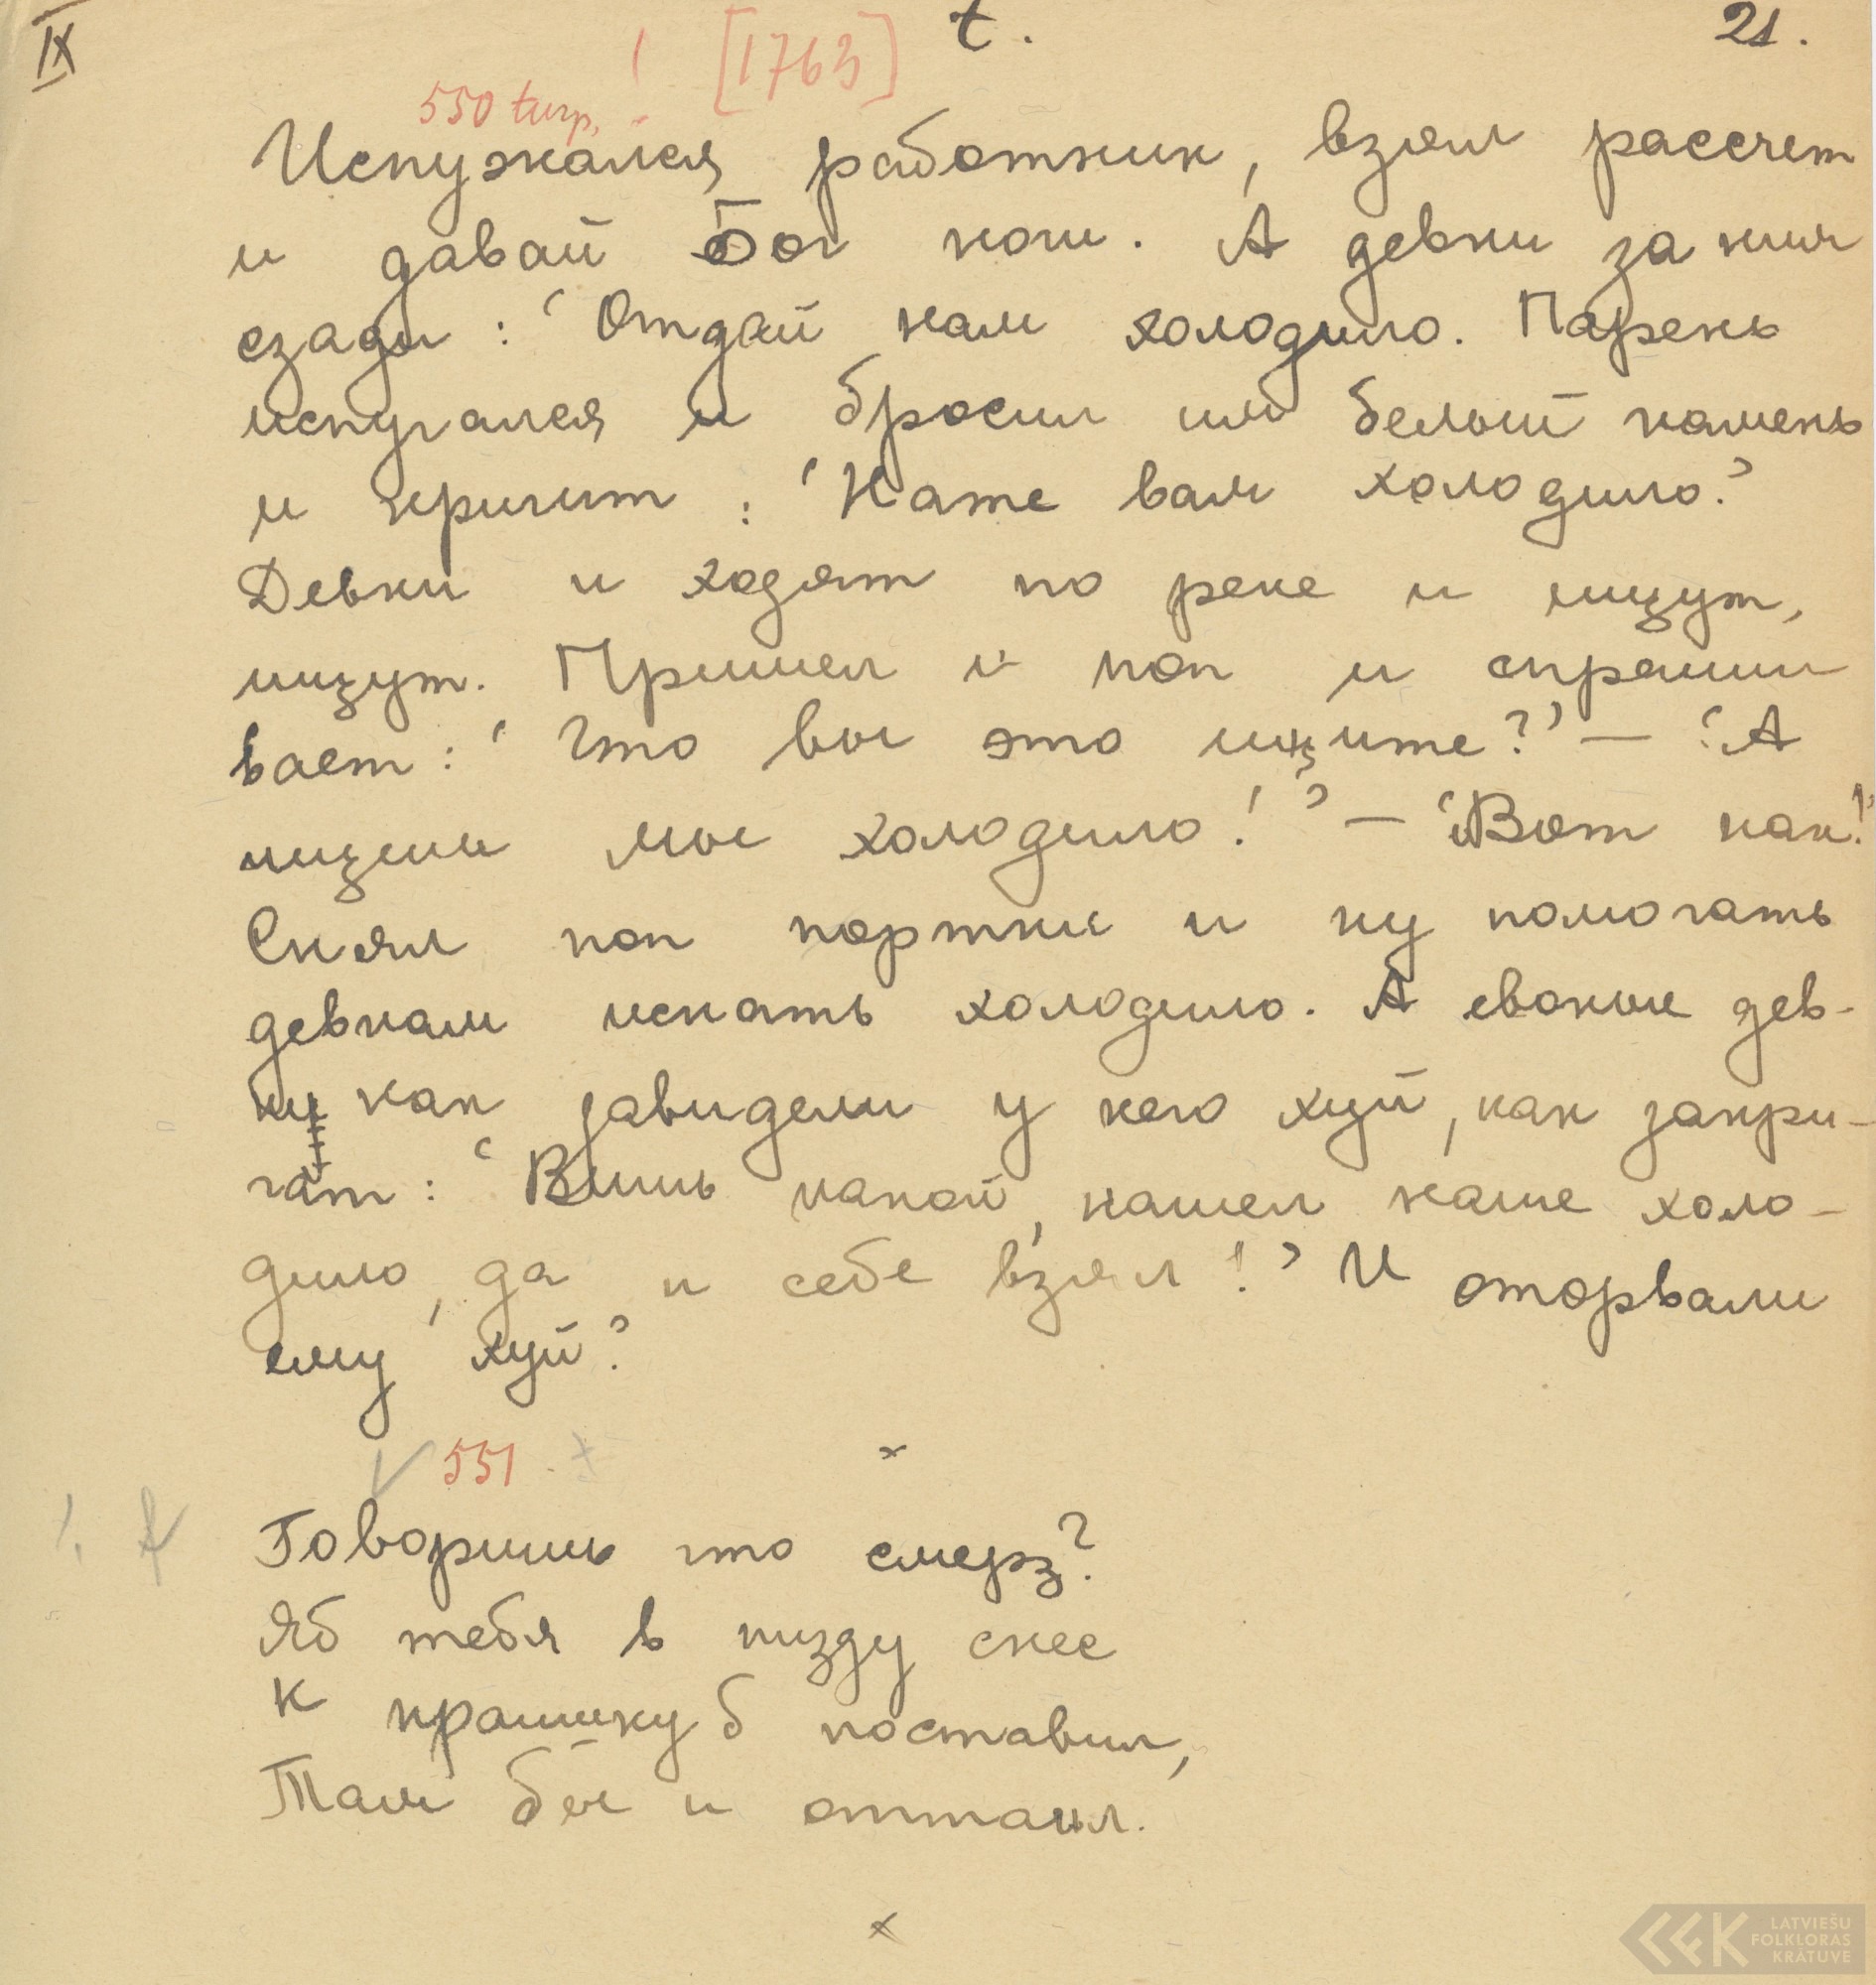 IX
t.
21.
! [1763]
550 turp.
Испужался работник, взял рассчет
и давай Бог ноги. А девки за ним
сзади: 'Отдай нам холодило. Парень
испугался и бросил им белый камень
и кричит: 'Нате вам холодило?'
Девки и ходят по реке и ищут,
ищут. Пришел и поп и спраши
вает: 'Что вы это ищите?' — 'А
ищем мы холодило!' — 'Вот как!'
Снял поп портки и ну помогать
девкам искать холодило. А евоные дев-
ки как завидели у него хуй, как закри-
чат: 'Вишь какой, нашел наше холо-
дило, да и себе взял!' И оторвали
ему хуй?
551
×
Говоришь что смерз?
Яб тебя в пизду снес
К крашику б поставил,
Там бы и оттаил.
×
LATVIEŠU
FOLKLORAS
KRĀTUVE